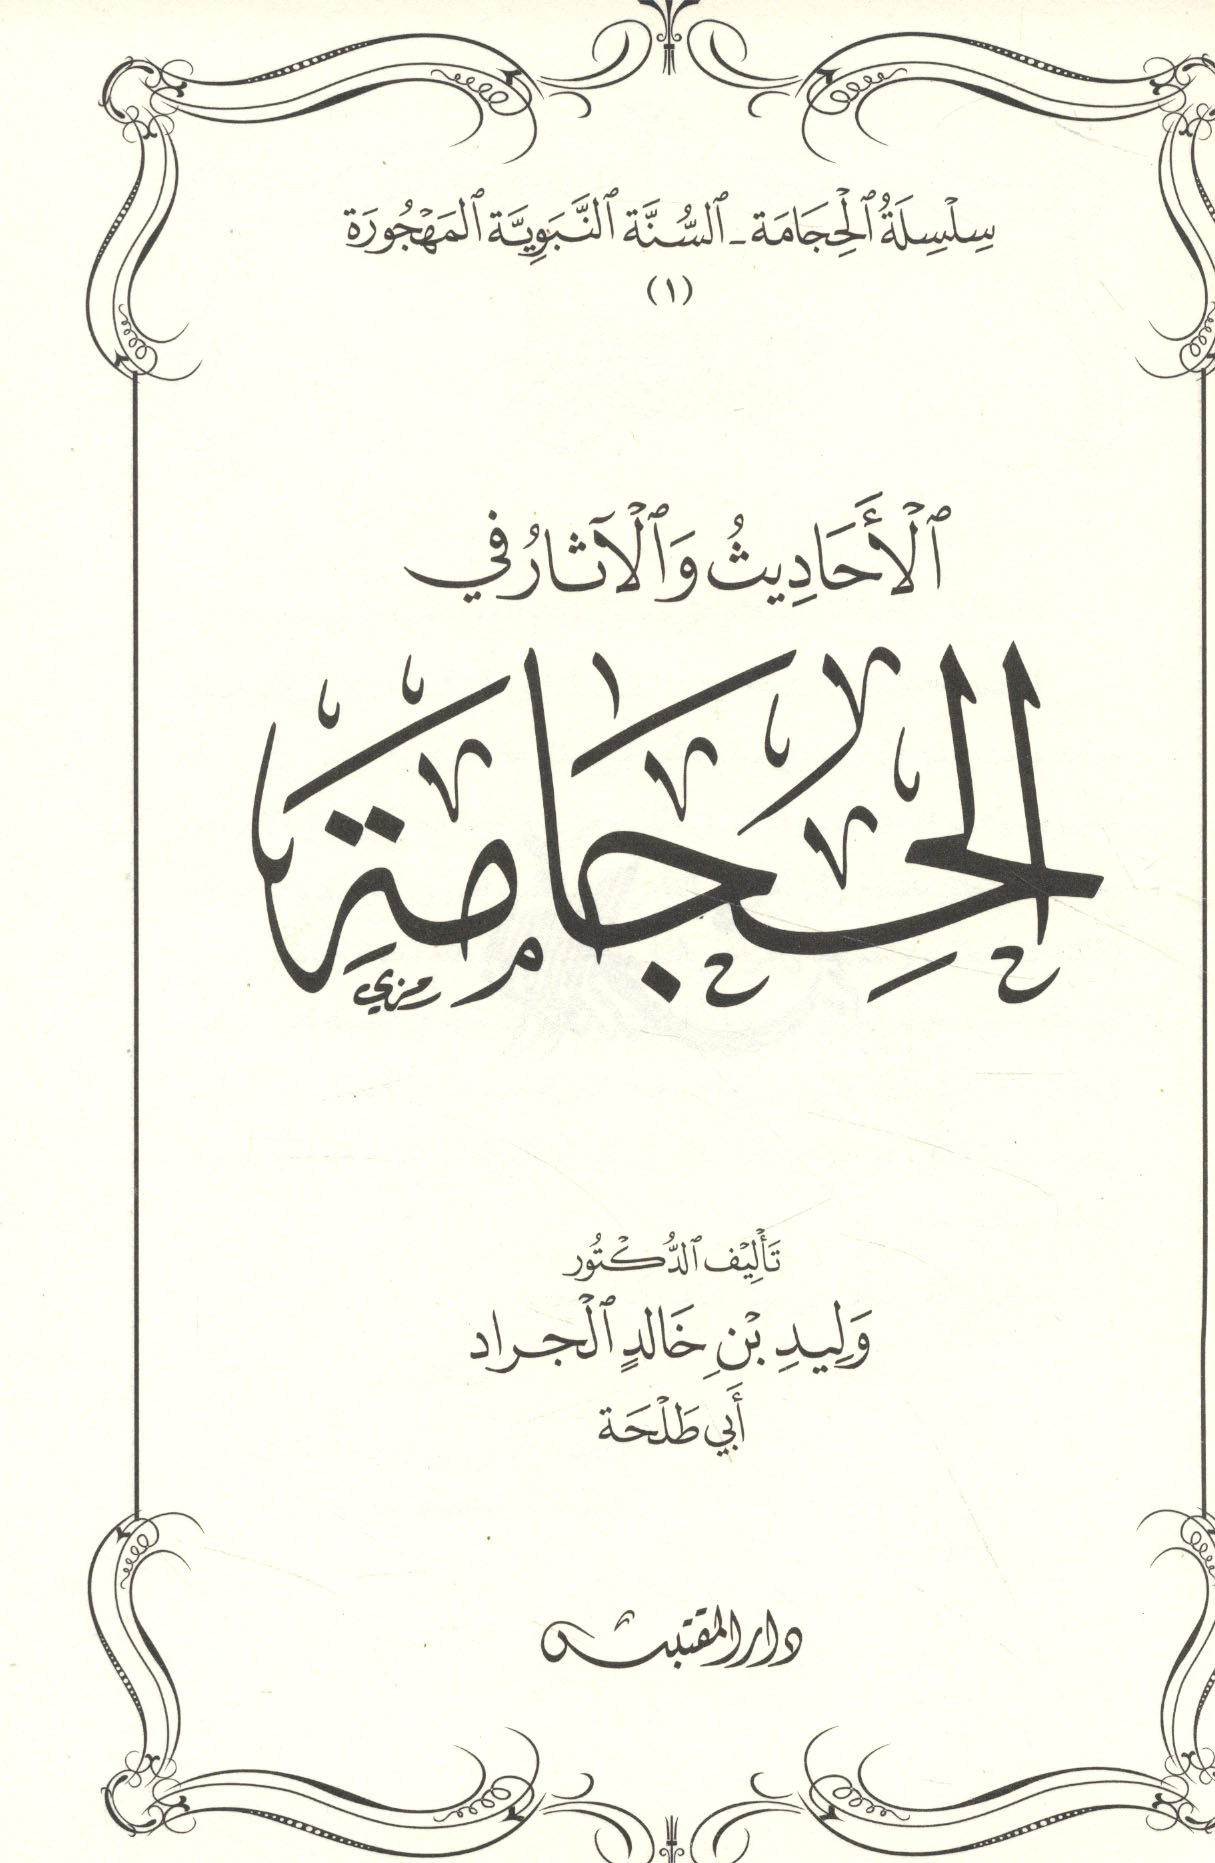 سِلْسِلَةُ ٱلْحِجَامَة - ٱلسُّنَّة ٱلنَّبَوِيَّة ٱلمَهْجُورَة
(١)
ٱلْأَحَادِيثُ وَٱلْآثَارُ فِي
الحِجَامَةِ
رمزي
تَأْلِيْف ٱلدُّكْتُور
وَلِيدِ بْنِ خَالدٍ ٱلْجراد
أَبي طَلْحَة
دار المقتبس